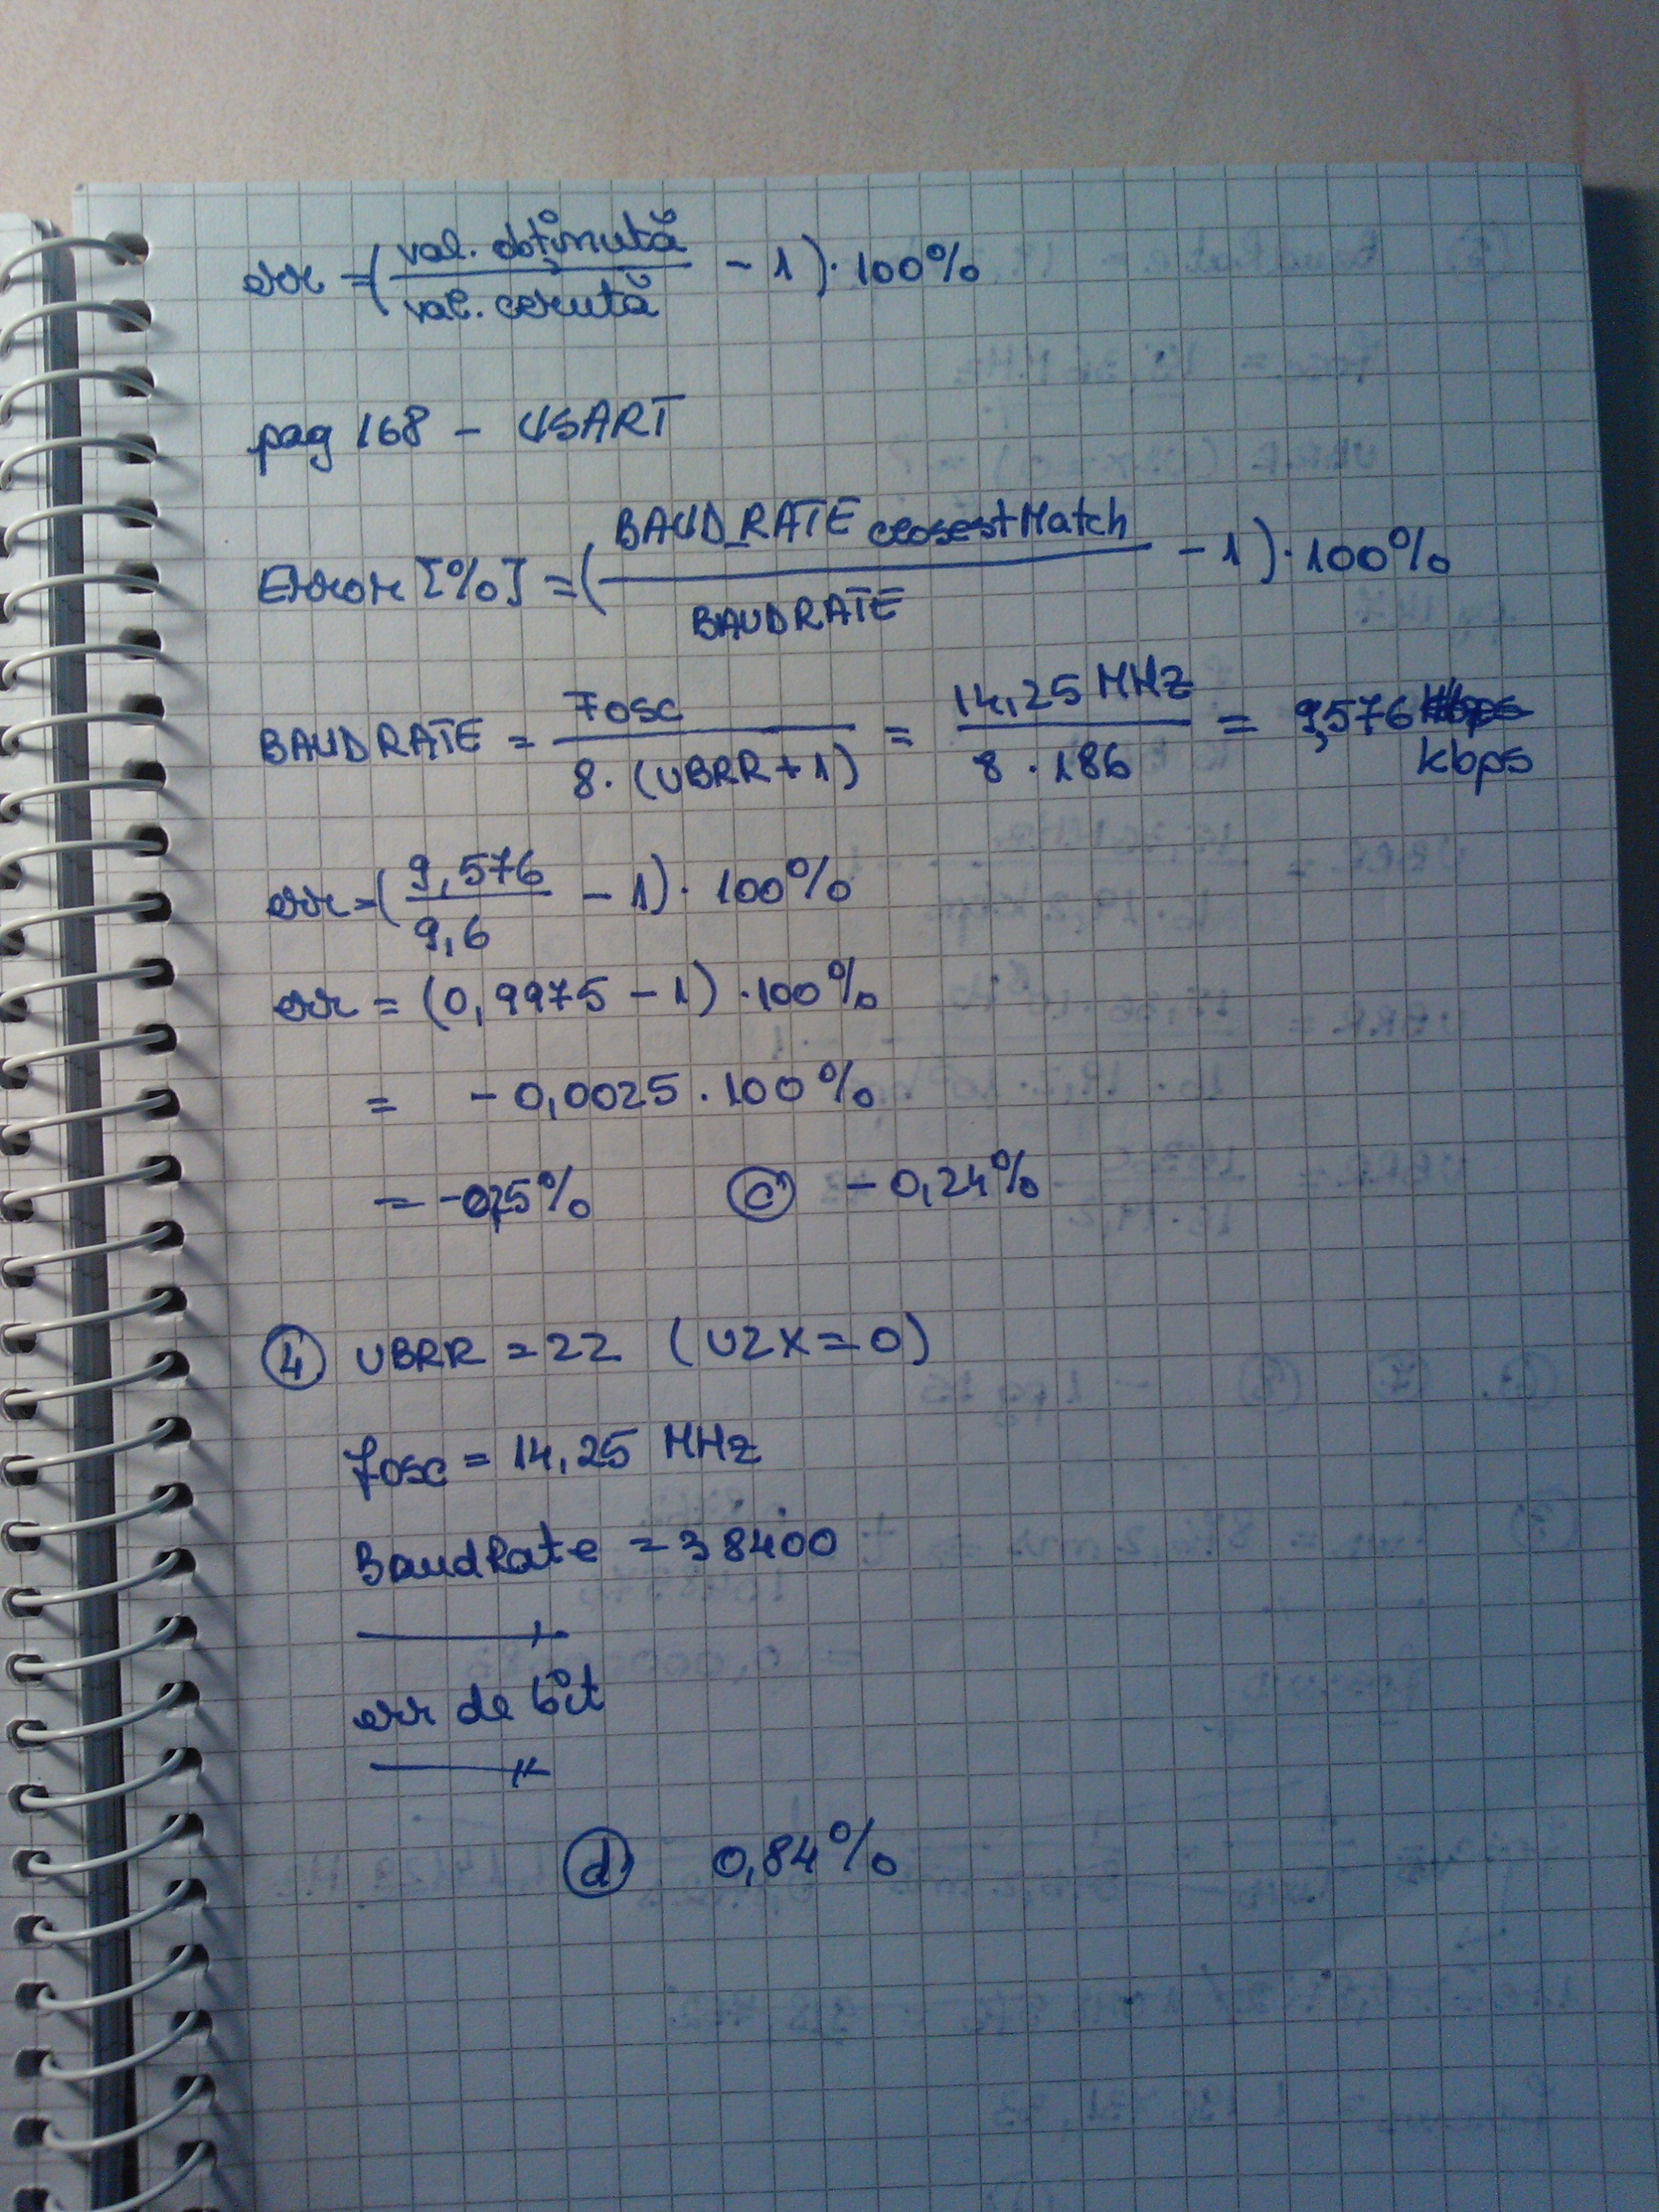 err = (val. obținută / val. cerută - 1) · 100%
pag 168 - USART
Error [%] = (BAUD_RATE closestMatch / BAUDRATE - 1) · 100%
BAUDRATE = fosc / 8 · (UBRR + 1) = 14,25 MHz / 8 · 186 = 9,576 kbps
err = (9,576 / 9,6 - 1) · 100%
err = (0,9975 - 1) · 100%
= - 0,0025 · 100%
= - 0,25% c) - 0,24%
4) UBRR = 22 (U2X = 0)
fosc = 14,25 MHz
BaudRate = 38400
err de bit
d) 0,84%